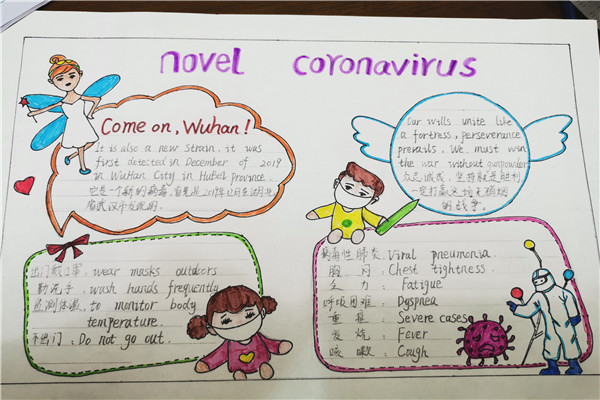 novel coronavirus
Come on, Wuhan!
It is also a new strain. it was
first detected in December of 2019
in WuHan City in HuBei Province.
它是一个新的病毒,首先是2019年12月在湖北
省武汉市发现的.
Our wills unite like
a fortress, perseverance
prevails, We must win
the war without gunpowder
众志成城,坚持就是胜利
一定打赢这场无硝烟
的战争。
出门戴口罩: wear masks outdoors
勤洗手: wash hands frequently
监测体温: to monitor body
temperature.
不出门: Do not go out.
病毒性肺炎: Viral pneumonia.
胸闷: Chest tightness.
乏力: Fatigue
呼吸困难: Dyspnea
重症: Severe cases
发烧: Fever
咳嗽: Cough